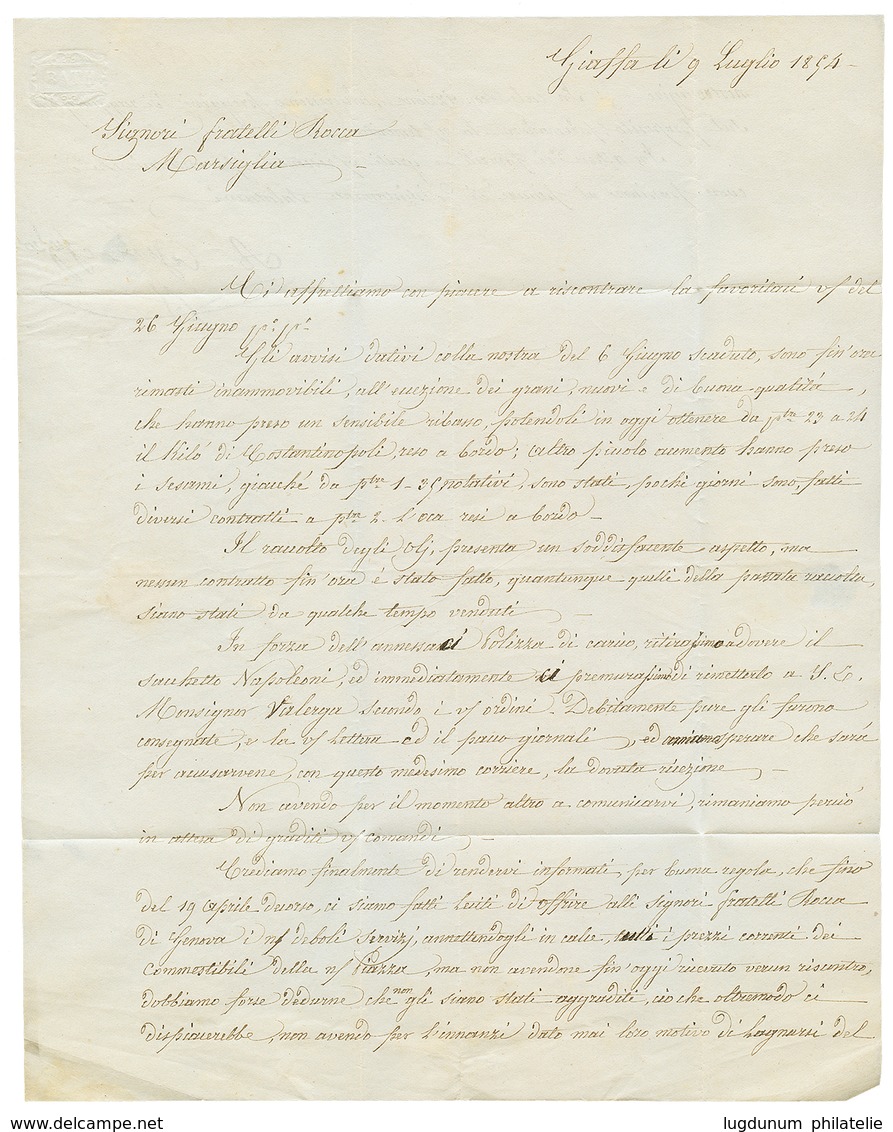 BATH
Giaffa li 9 Luglio 1854
Signori fratelli Rocca
Marsiglia
Ci affrettiamo con piacere a riscontrare la favoritaci v/ del
26 Giugno pº pº
Gli avvisi dativi colla nostra del 6 Giugno scaduto, sono fin'ora
rimasti inammovibili, all'eccezione dei grani, nuovi e di buona qualità,
che hanno preso un sensibile ribasso, potendoli in oggi ottenere da ptre 23 a 24
il Kilò di Costantinopoli, reso a bordo; altro picolo aumento hanno preso
i sesami, giacché da ptre 1-35 notativi, sono stati, pochi giorni sono fatti
diversi contratti a ptre 2. l'oca resi a bordo
Il raccolto degli Olj, presenta un soddisfacente aspetto, ma
nessun contratto fin'ora è stato fatto, quantunque quelli della passata raccolta,
siano stati da qualche tempo venduti
In forza dell'annessaci Polizza di carico, ritirassimo a dovere il
sacchetto Napoleoni, ed immediatamente ci premurassimo di rimetterlo a S. E.
Monsignor Valerga secondo i v/ ordini. Debitamente pure gli furono
consegnate, e la v/ lettera ed il pacco giornali, ed sperare che sarà
per accusarvene, con questo medesimo corriere, la dovuta ricezione
Non avendo per il momento altro a comunicarvi, rimaniamo perciò
in attesa di graditi v/ comandi
Crediamo finalmente di rendervi informati, per buona regola, che fino
del 19 Aprile decorso, ci siamo fatti lesiti di offrire alli signori fratelli Rocca
di Genova i n/ deboli servizj, annottendogli in calce tutti i prezzi correnti dei
Commostibili della n/ Piazza, ma non avendone fin'oggi ricevuto verun riscontro,
dobbiamo forse dedurne che non gli siano stati aggraditi, ciò che oltremodo ci
dispiacerebbe, non avendo per l'innanzi dato mai loro motivo di lagnarsi del
www.delcampe.net
lugdunum philatelie